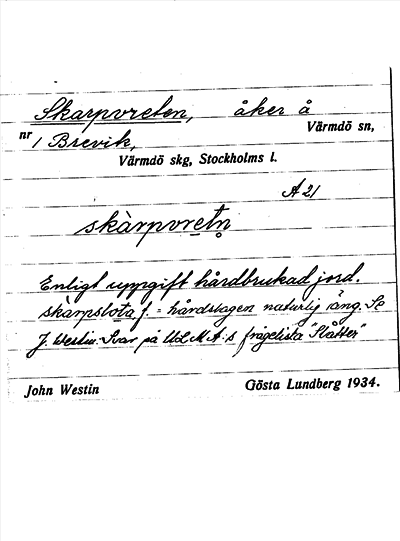 Skarpvreten, åker å
Värmdö sn,
nr 1 Brevik,
Värmdö skg, Stockholms l.
A 21
skàrpvretn̥
Enligt uppgift hårdbrukad jord.
skàrpslota f. = hårdslagen naturlig äng. Se
J. Westin: Svar på ULMA:s frågelista "Slåtter"
John Westin
Gösta Lundberg 1934.